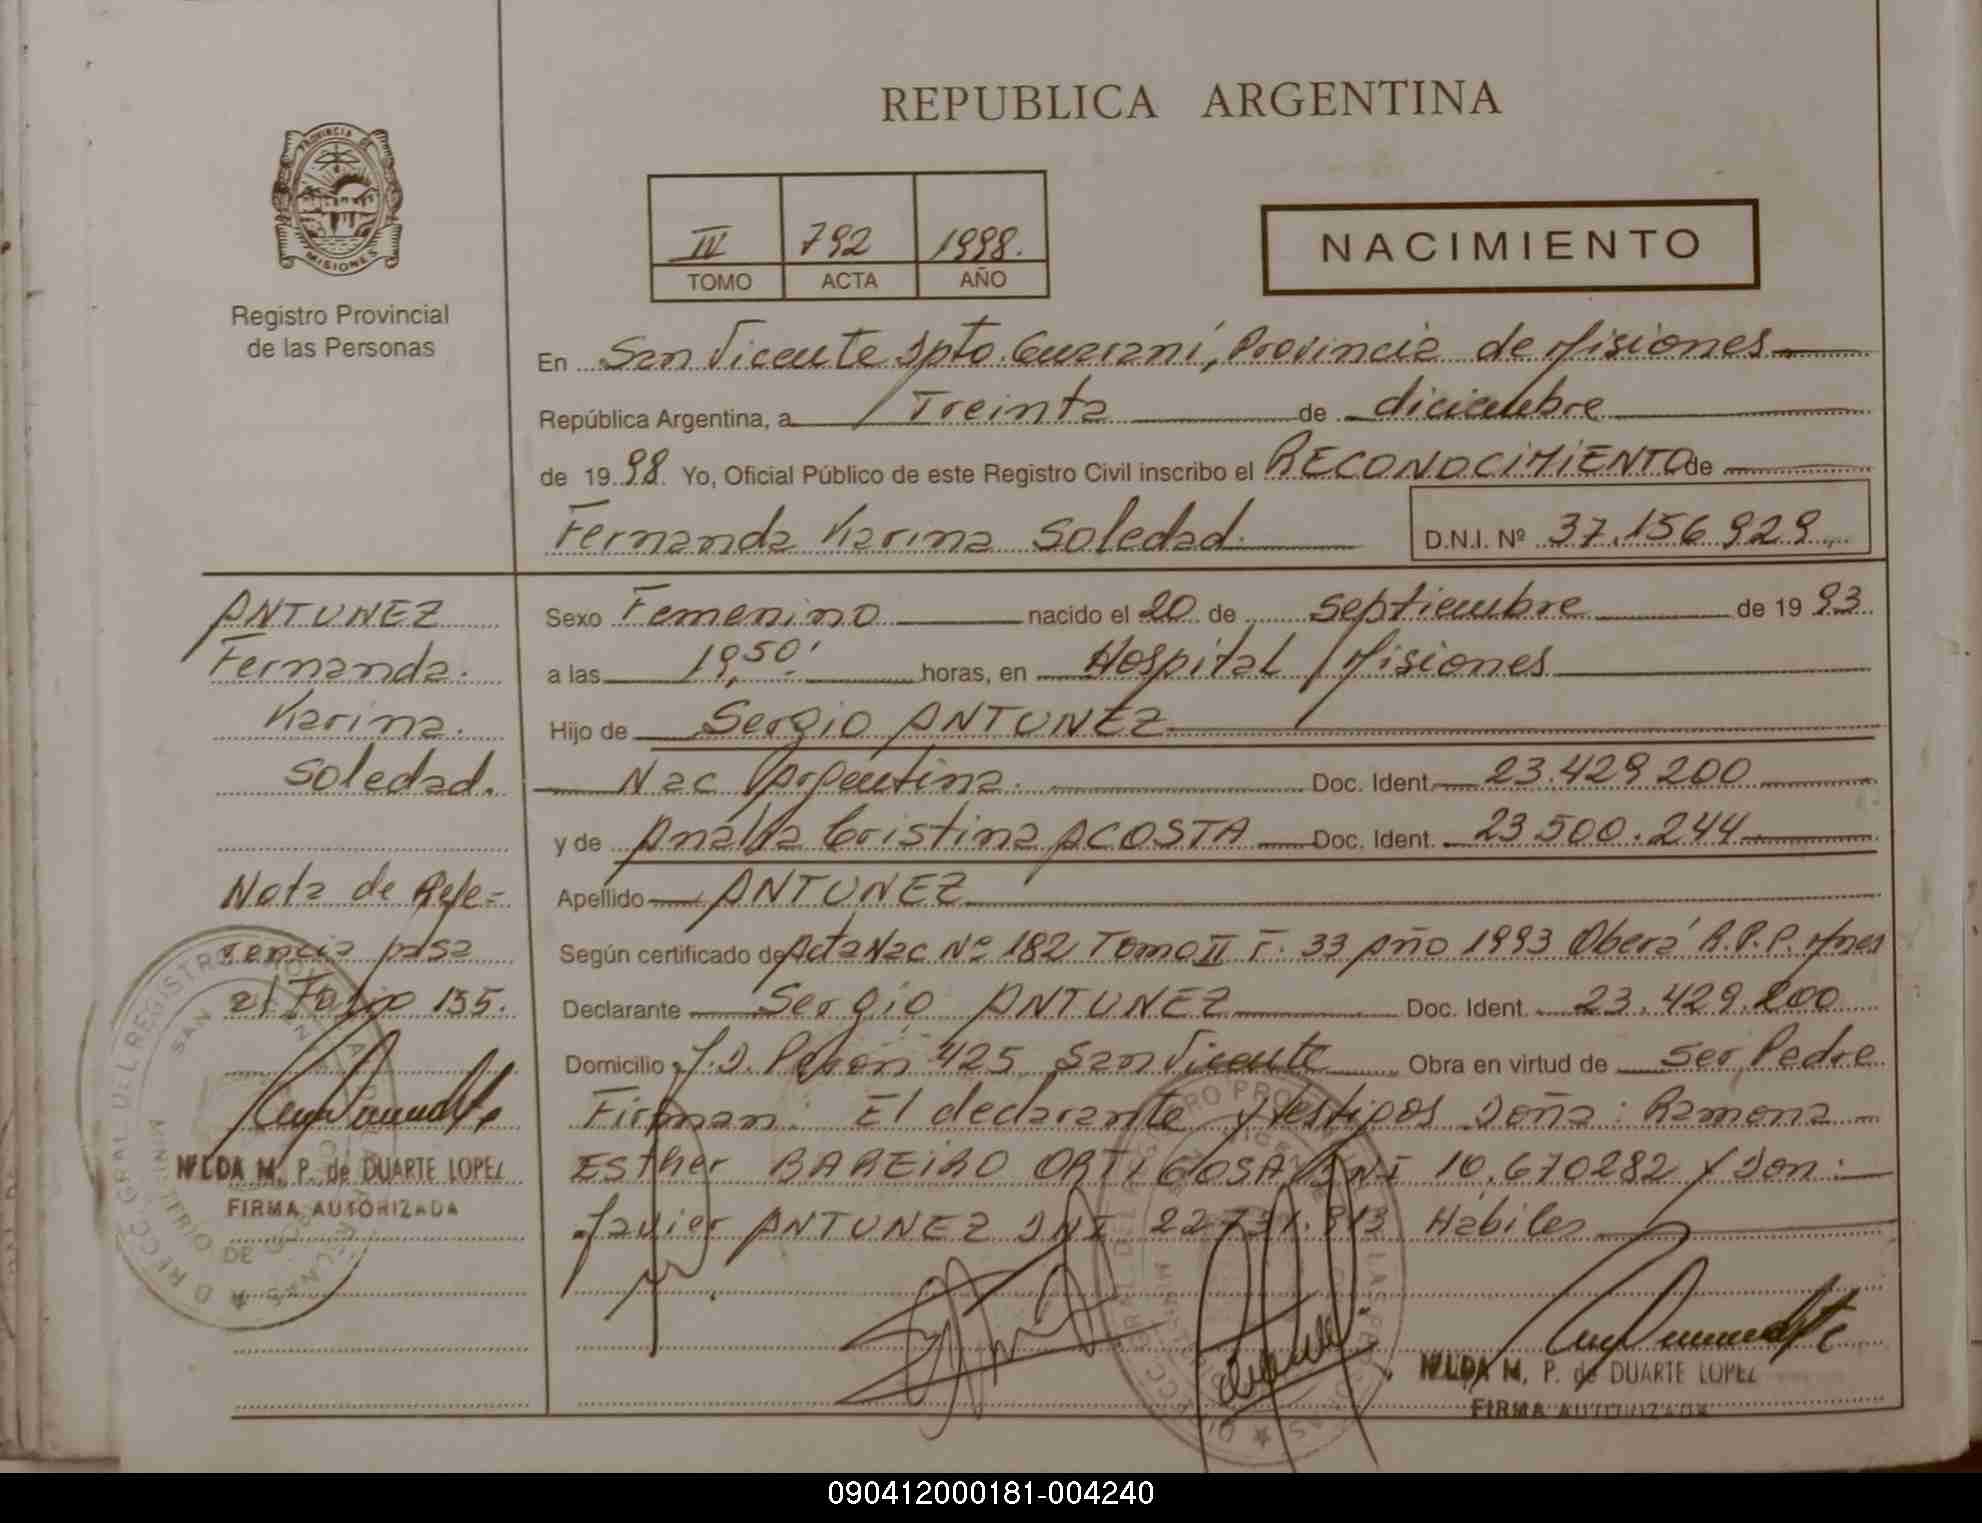 REPUBLICA ARGENTINA
PROVINCIA DE
MISIONES
Registro Provincial
de las Personas
IV 792 1998.
TOMO ACTA AÑO
NACIMIENTO
En San Vicente Dpto. Guaraní, Provincia de Misiones
República Argentina, a Treinta de diciembre
de 1998. Yo, Oficial Público de este Registro Civil inscribo el RECONOCIMIENTO de
Fernanda Karina Soledad. D.N.I. Nº 37.156.929
ANTUNEZ
Fernanda.
Karina.
Soledad.
Nota de Refe=
rencia pasa
al Folio 135.
NILDA M. P. de DUARTE LOPEZ
FIRMA AUTORIZADA
Sexo Femenino nacido el 20 de septiembre de 1993
a las 19,50' horas, en Hospital Misiones
Hijo de Sergio ANTUNEZ
Nac Argentina. Doc. Ident. 23.429.200
y de Analia Cristina ACOSTA Doc. Ident. 23.500.244
Apellido ANTUNEZ
Según certificado de Acta Nac Nº 182 Tomo II F. 33 Año 1993 Oberá R.P.P. Mnes
Declarante Sergio ANTUNEZ Doc. Ident. 23.429.200
Domicilio J.D. Perón 425 San Vicente Obra en virtud de Ser Padre
Firman: El declarante y testigos Doña: Ramona
Esther BAREIRO ORTIGOSA DNI 10.670282 y Don:
Javier ANTUNEZ DNI 22731.813 Habiles
NILDA M. P. de DUARTE LOPEZ
FIRMA AUTORIZADA
090412000181-004240